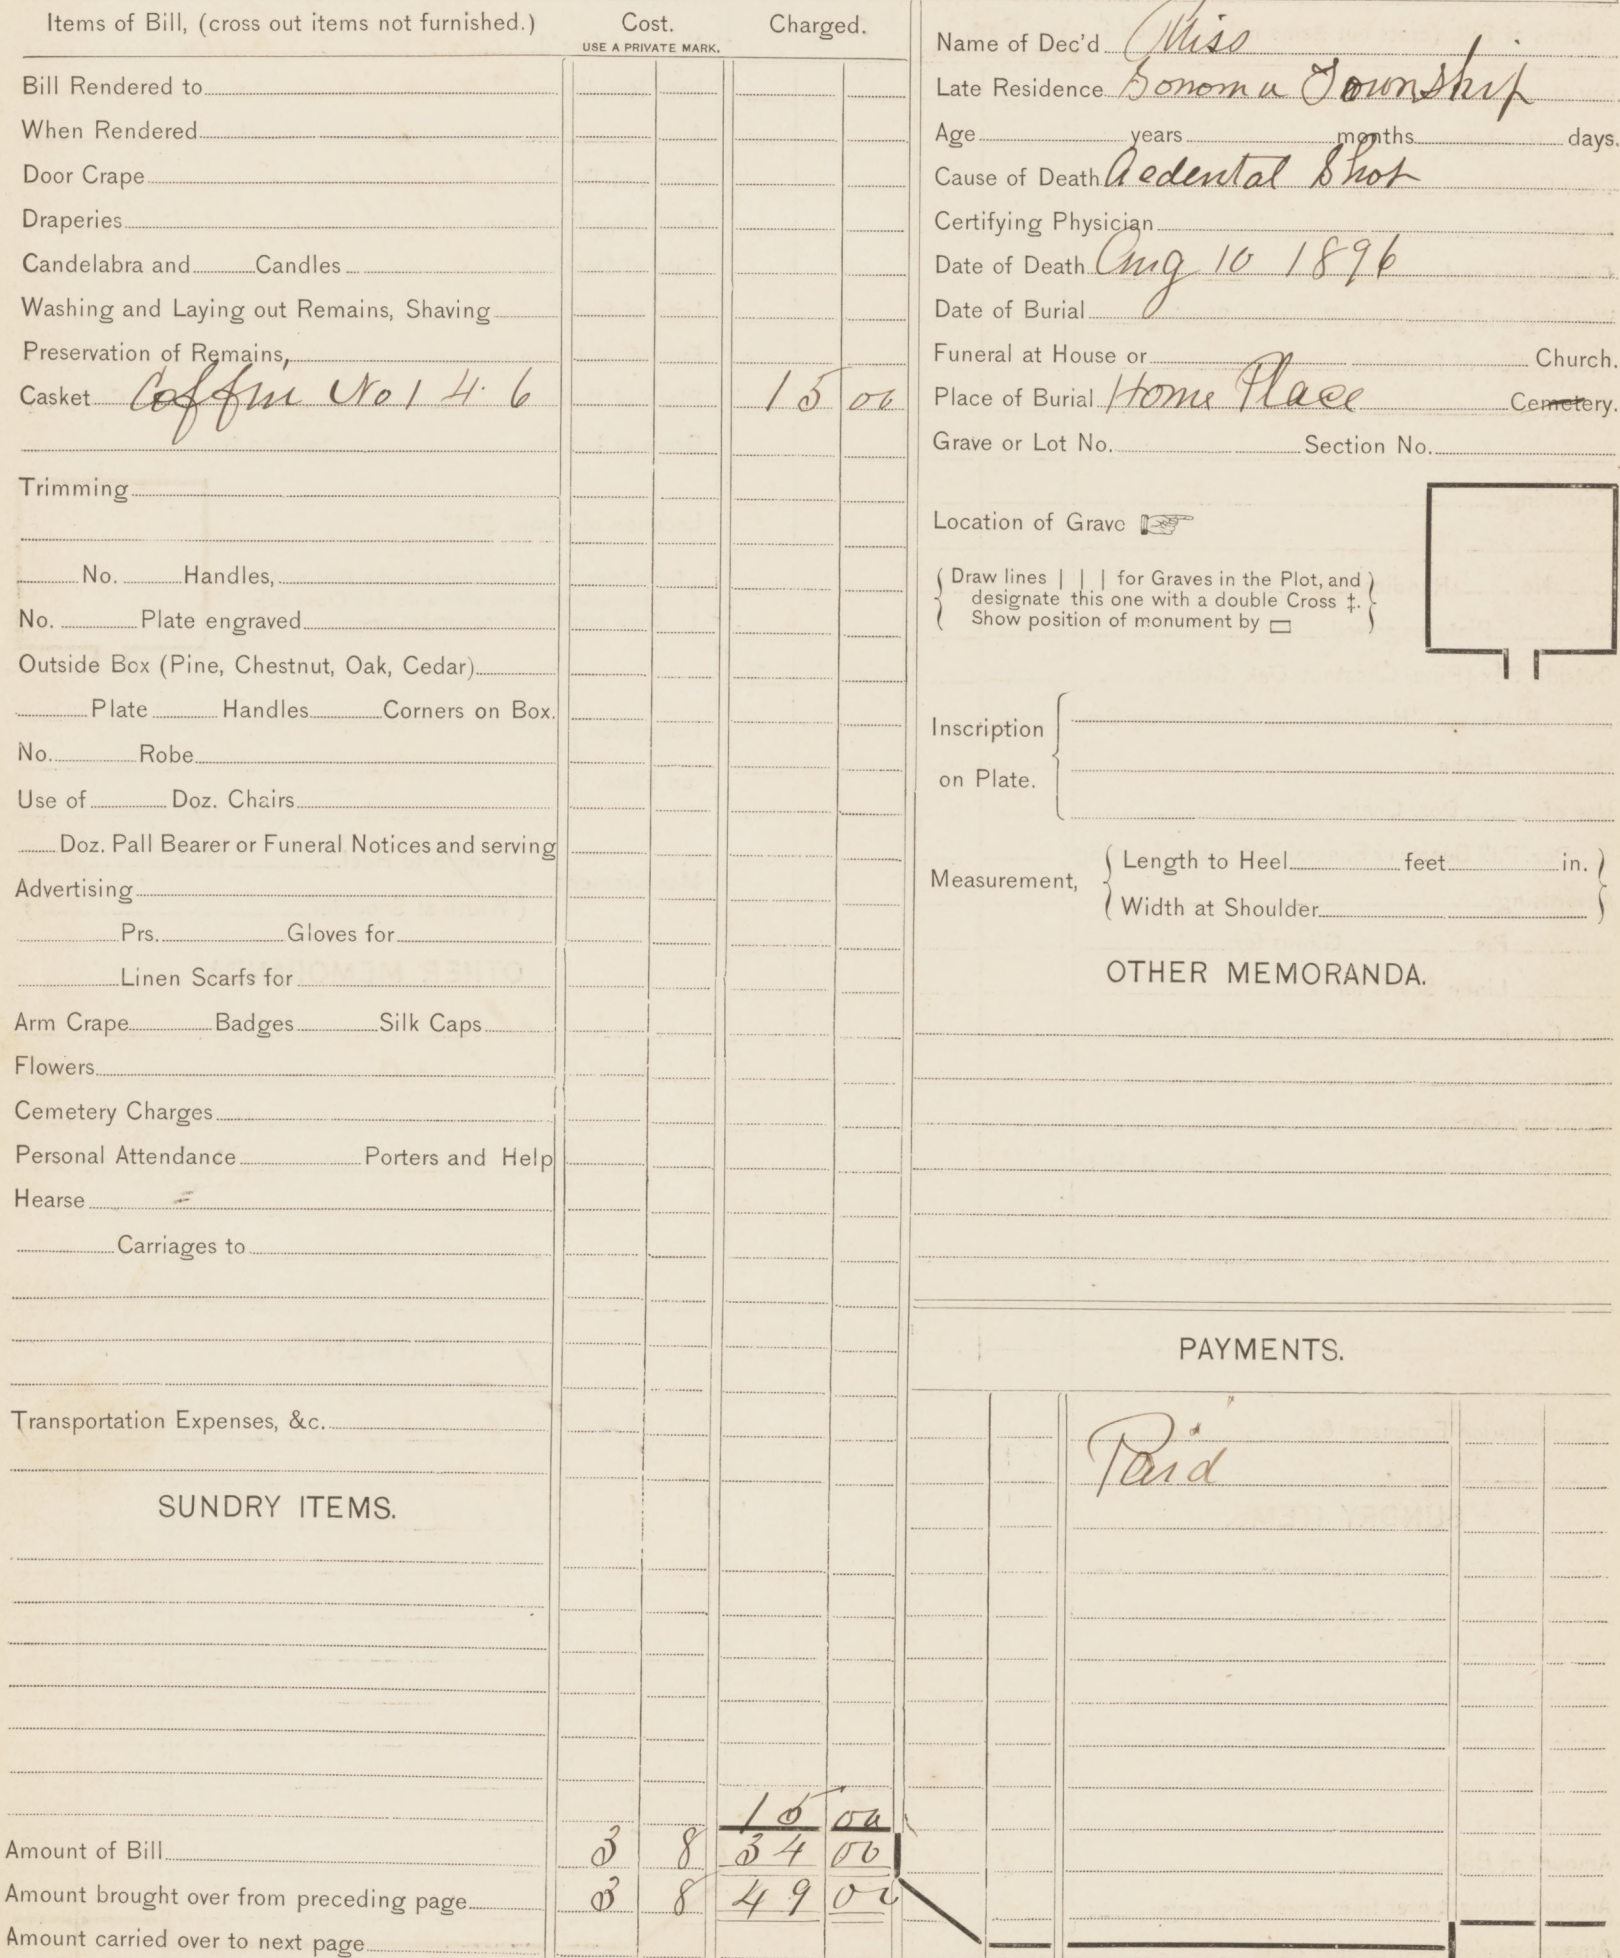 Items of Bill, (cross out items not furnished.) Cost. Charged.
USE A PRIVATE MARK.
Bill Rendered to
When Rendered
Door Crape
Draperies
Candelabra and Candles
Washing and Laying out Remains, Shaving
Preservation of Remains,
Casket Coffin No 1 4 6 15 00
Trimming
No. Handles,
No. Plate engraved
Outside Box (Pine, Chestnut, Oak, Cedar)
Plate Handles Corners on Box.
No. Robe
Use of Doz. Chairs
Doz. Pall Bearer or Funeral Notices and serving
Advertising
Prs. Gloves for
Linen Scarfs for
Arm Crape Badges Silk Caps
Flowers
Cemetery Charges
Personal Attendance Porters and Help
Hearse
Carriages to
Transportation Expenses, &c.
SUNDRY ITEMS.
15 00
Amount of Bill 3 8 34 00
Amount brought over from preceding page 3 8 49 00
Amount carried over to next page
Name of Dec'd Miss
Late Residence Sonoma Township
Age years months days.
Cause of Death Acdental Shot
Certifying Physician
Date of Death Aug 10 1896
Date of Burial
Funeral at House or Church.
Place of Burial Home Place Cemetery.
Grave or Lot No. Section No.
Location of Grave
Draw lines | | | for Graves in the Plot, and
designate this one with a double Cross ‡.
Show position of monument by
Inscription
on Plate.
Measurement,
Length to Heel feet in.
Width at Shoulder
OTHER MEMORANDA.
PAYMENTS.
Paid